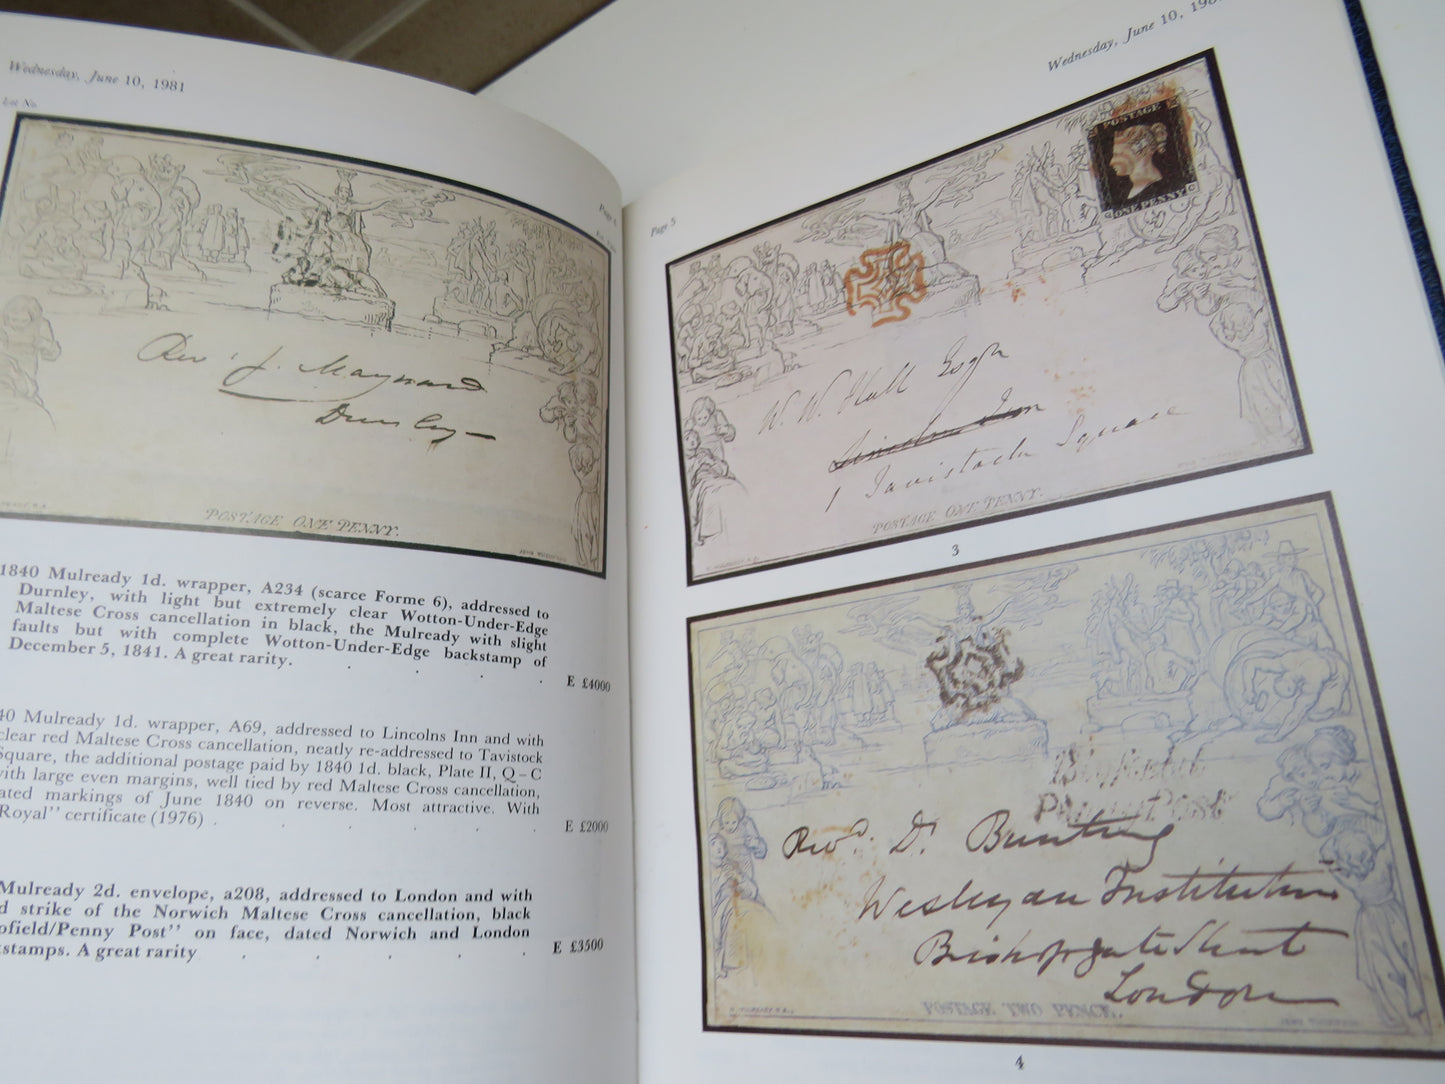 Wednesday, June 10, 1981
Lot No.
Page 4
Rev J. Maynard
Dursley
POSTAGE ONE PENNY.
1840 Mulready 1d. wrapper, A234 (scarce Forme 6), addressed to
Durnley, with light but extremely clear Wotton-Under-Edge
Maltese Cross cancellation in black, the Mulready with slight
faults but with complete Wotton-Under-Edge backstamp of
December 5, 1841. A great rarity. . . .
E £4000
40 Mulready 1d. wrapper, A69, addressed to Lincolns Inn and with
clear red Maltese Cross cancellation, neatly re-addressed to Tavistock
Square, the additional postage paid by 1840 1d. black, Plate II, Q – C
with large even margins, well tied by red Maltese Cross cancellation,
ated markings of June 1840 on reverse. Most attractive. With
Royal" certificate (1976) . . . . . .
E £2000
Mulready 2d. envelope, a208, addressed to London and with
d strike of the Norwich Maltese Cross cancellation, black
ofield/Penny Post" on face, dated Norwich and London
stamps. A great rarity . . . . .
E £3500
Wednesday, June 10, 198
Page 5
POSTAGE
ONE PENNY
W. W. Hull Esqr
Lincolns Inn
1 Tavistock Square
POSTAGE ONE PENNY.
3
Penny Post
Revd. Dr. Bunting
Wesleyan Institution
Bishopgate Street
London
POSTAGE TWO PENCE.
4